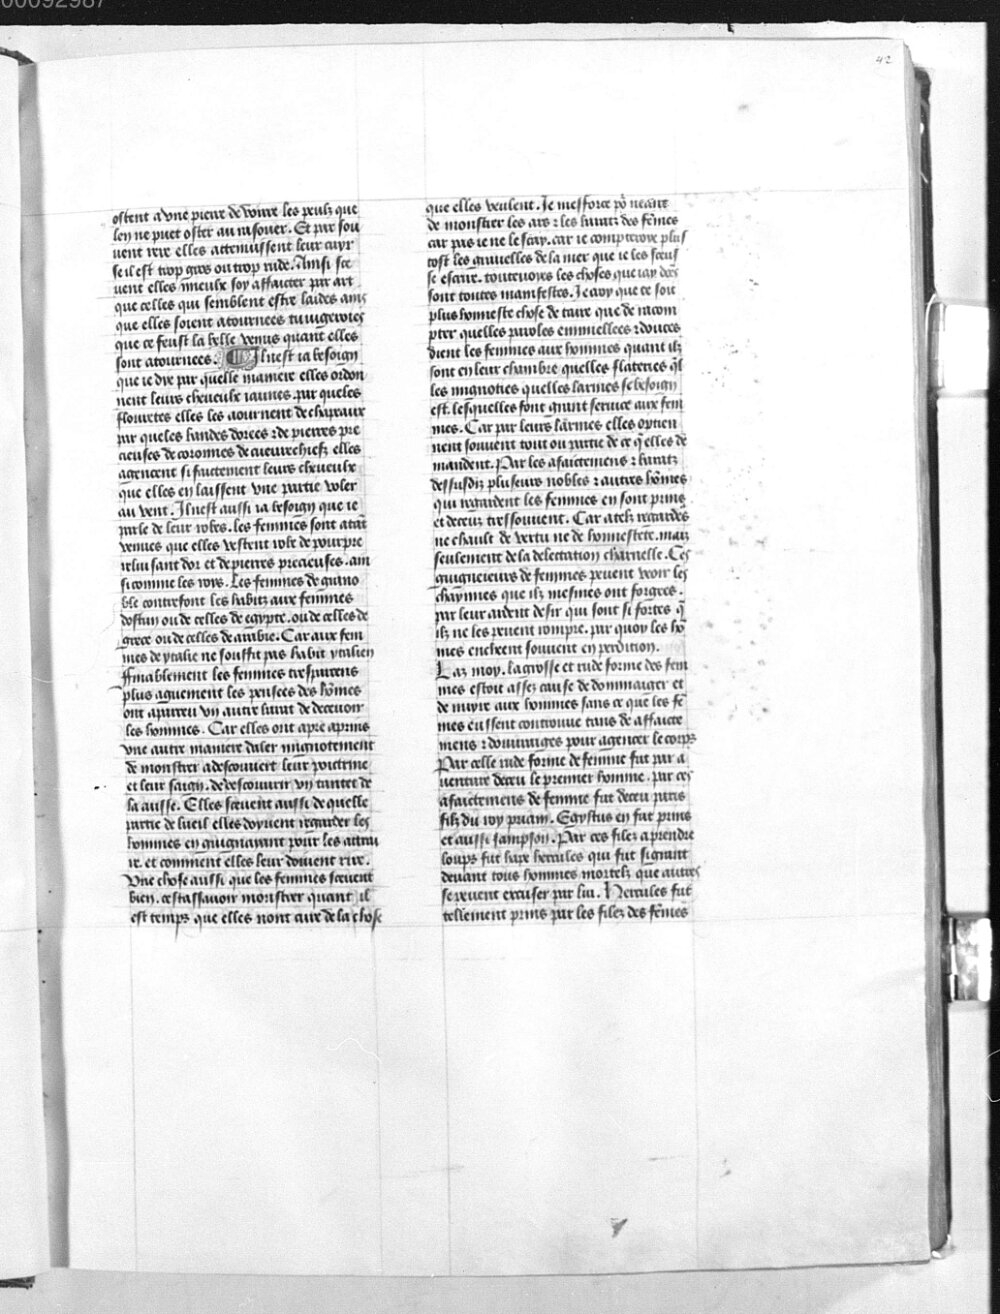 00092987
42
ostent a vne pierre de voirre les peulz que
len ne puet oster au rasouer. Et par sou
uent rere elles attenuissent leur cuyr
se il est trop gros ou trop rude. Ainsi sce
uent elles mieulx soy affaictier par art
que celles qui semblent estre laides ains
que elles soient atournees tu iugeroies
que ce feust la belle venus quant elles
sont atournees. Il nest ia besoign
que ie die par quelle maniere elles ordon
nent leurs cheueulx iaunes. par queles
flourettes elles les aournent de chapeaux
par queles bandes dorees ⁊ de pierres pre
cieuses de coronnes de cueurechiefz elles
agencent si faictement leurs cheueulx
que elles en laissent vne partie voler
au vent. Il nest aussi ia besoign que ie
parle de leur robes. les femmes sont atat
venues que elles vestent robe de pourpre
reluisant dor et de pierres precieuses. ain
si comme les roys. Les femmes de guino
ble contrefont les habitz aux femmes
dostun ou de celles de egypte. ou de celles de
grece ou de celles de arabie. Car aux fem
mes de ytalie ne souffit pas habit ytalien
Finablement les femmes trespurens
plus aguement les pensees des hõmes
ont apareu vn autre barat de deceuoir
les hommes. Car elles ont apre aprins
vne autre maniere daler mignotement
de monstrer a descouuert leur poictrine
et leur saign. de descouurir vn tantet de
la cuisse. Elles sceuent aussi de quelle
partie de lueil elles doyuent regarder les
hommes en guignant pour les attrai
re. et comment elles leur doiuent rire.
Vne chose aussi que les femmes sceuent
bien. cestassauoir monstrer quant il
est temps que elles nont cure de la chose
que elles veulent. Je mefforce põ neant
de monstrer les ars ⁊ les baratz des fẽmes
car pas ie ne le scay. car ie compteroye plus
tost les grauelles de la mer que ie les sceus
se escrire. toutesuoyes les choses que iay des
sont toutes manifestes. Je croy que ce soit
plus honneste chose de taire que de racom
pter quelles paroles emmiellees ⁊ doulces
dient les femmes aux hommes quant ilz
sont en leur chambre quelles flateries q̃l
les mignoties quelles larmes se besoign
est. lesquelles font grant seruice aux fem
mes. Car par leurs larmes elles optien
nent souuent tout ou partie de ce q̃ elles de
mandent. Par les afaictemens ⁊ baratz
dessusdiz pluseurs nobles ⁊ autres hõmes
qui regardent les femmes en sont prins
et deceuz tressouuent. Car a telz regardes
ne chault de vertu ne de honnestete. mais
seulement de la delectation charnelle. Ces
guigneieurs de femmes peuent veoir les
chaynnes que ilz mesmes ont forgees.
par leur ardent desir qui sont si fortes q̃
ilz ne les peuent rompre. par quoy les hõ
mes encheent souuent en perdition.
Laz moy. la grosse et rude forme des fem
mes estoit assez cause de dommaiger et
de nuyre aux hommes sans ce que les fẽ
mes eussent controuue tans de affaicte
mens ⁊ dommages pour agencer le corps
Par celle rude forme de femme fut par a
uenture deceu le premier homme. par ces
afaictemens de femme fut deceu paris
filz du roy priam. Egystus en fut prins
et aussi sampson. Par ces filez a prendre
loups fut hape hercules qui fut si grant
deuant tous hommes mortelz que autres
se peuent excuser par lui. Hercules fut
tellement prins par les filez des fẽmes